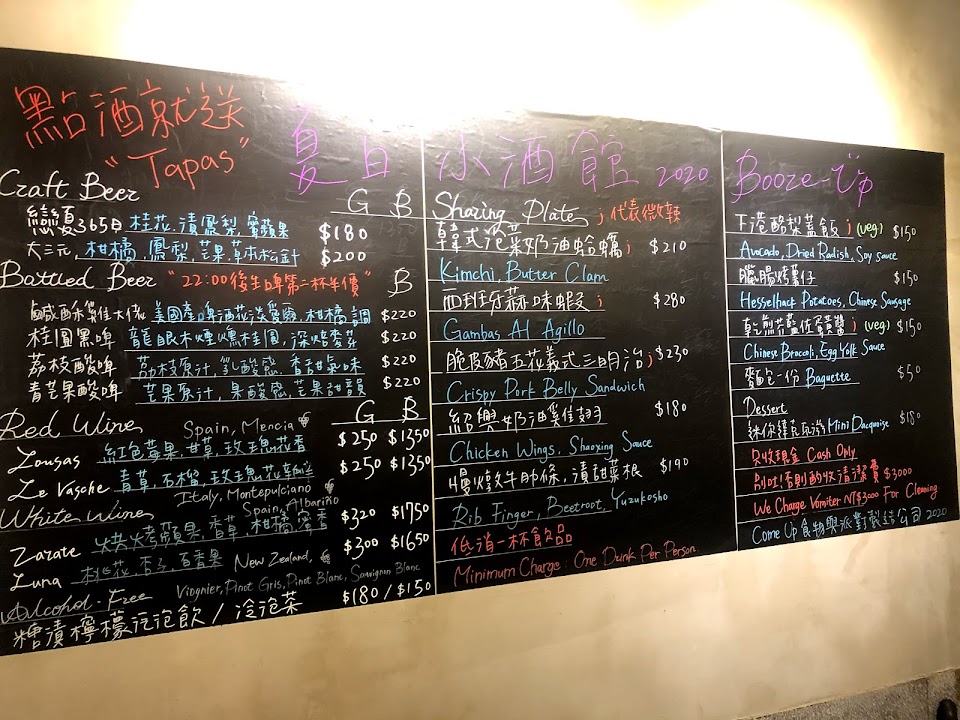 點酒就送
"Tapas"
夏日 小酒館 2020 Booze-up
Craft Beer G B
戀愛365日 桂花、漬鳳梨、蜜蘋果 $180
大三元 柑橘、鳳梨、芒果、草本松針 $200
Bottled Beer "22:00後生啤第二杯半價" B
鹹酥雞佳大佬 美國產啤酒花淡愛爾、柑橘調 $220
桂圓黑啤 龍眼木煙燻桂圓、深焙麥芽 $220
荔枝酸啤 荔枝原汁、乳酸感、香甜氣味 $220
青芒果酸啤 芒果原汁、果酸感、芒果甜韻 $220
Red Wine Spain, Mencia G B
Lousas 紅色莓果、甘草、玫瑰花香 $250 $1350
Le Vasche 青草、石榴、玫瑰花 $250 $1350
Italy, Montepulciano
White Wine Spain, Albariño
Zarate 烘烤蘋果、香草、柑橘、蜜香 $320 $1750
Luna 桃花、杏子、百香果 New Zealand, $300 $1650
Viognier, Pinot Gris, Pinot Blanc, Sauvignon Blanc
Alcohol-Free
糖漬檸檬汽泡飲 / 冷泡茶 $180 / $150
Sharing Plate 代表微辣
韓式泡菜奶油蛤蠣 $210
Kimchi, Butter Clam
西班牙蒜味蝦 $280
Gambas Al Agillo
脆皮豬五花義式三明治 $230
Crispy Pork Belly Sandwich
紹興奶油雞翅 $180
Chicken Wings, Shaoxing Sauce
慢燉牛肋條、漬甜菜根 $190
Rib Finger, Beetroot, Yuzukosho
低消一杯飲品
Minimum Charge: One Drink Per Person
下港酪梨蓋飯 (veg) $150
Avocado, Dried Radish, Soy sauce
臘腸烤薯仔 $150
Hesselback Potatoes, Chinese Sausage
乾煎芥藍佐蛋黃醬 (veg) $150
Chinese Brocoli, Egg Yolk Sauce
麵包一份 Baguette $50
Dessert
迷你達克瓦茲 Mini Dacquoise $180
只收現金 Cash Only
別吐!否則酌收清潔費 $3000
We Charge Vomiter NT$3000 For Cleaning
Come Up 食物與派對製造公司 2020